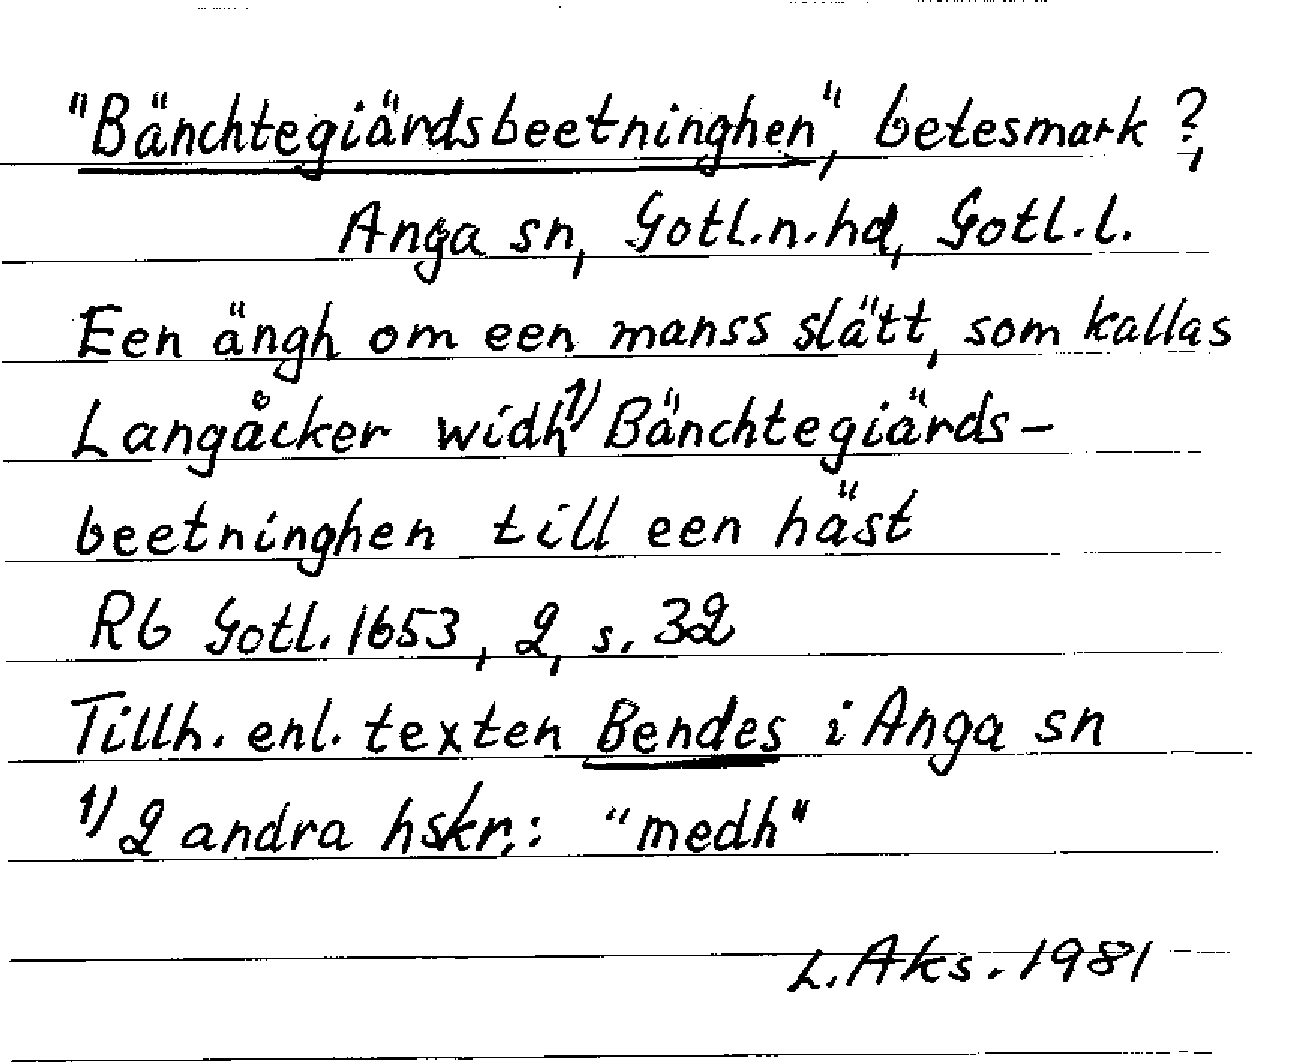 "Bänchtegiärdsbeetninghen", betesmark ?,
Anga sn, Gotl.n.hd, Gotl.l.
Een ängh om een manss slätt, som kallas
Langåcker widh 1) Bänchtegiärds-
beetninghen till een häst
Rb Gotl. 1653, 2, s. 32
Tillh. enl. texten Bendes i Anga sn
1) 2 andra hskr.: "medh"
L. Aks. 1981